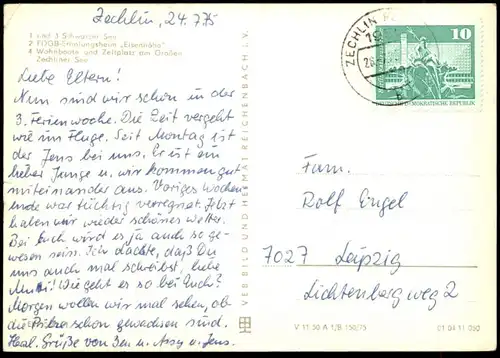 Zechlin, 24.7.75
1 und 3 Schwarzer See
2 FDGB-Erholungsheim „Eisenhöhe"
4 Wohnboote und Zeltplatz am Großen
Zechliner See
Liebe Eltern!
Nun sind wir schon in der
3. Ferienwoche. Die Zeit vergeht
wie im Fluge. Seit Montag ist
der Jens bei uns. Er ist ein
lieber Junge u. wir kommen gut
miteinander aus. Voriges Wochen
ende war tüchtig verregnet. Jetzt
haben wir wieder schönes Wetter.
Bei Euch wird es ja auch so ge-
wesen sein. Ich dachte, daß Du
uns auch mal schreibst, liebe
Mutti! Wie geht es so bei Euch?
Morgen wollen wir mal sehen, ob
die Pilze schon gewachsen sind.
Herzl. Grüße von u. Jens.
VEB BILD UND HEIMAT REICHENBACH I. V.
ZECHLIN
10
DEUTSCHE DEMOKRATISCHE REPUBLIK
Fam.
Rolf Engel
7027 Leipzig
Lichtenbergweg 2
V 11 50 A 1/B 150/75
01 04 11 030